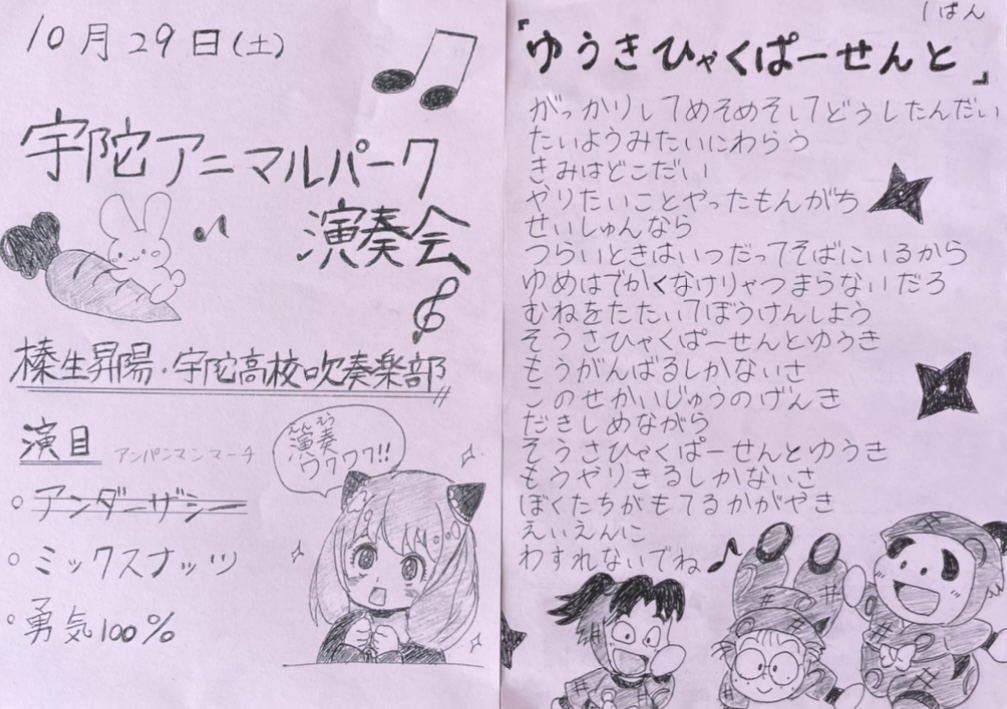 10月29日(土)
宇陀アニマルパーク
演奏会
榛生昇陽・宇陀高校吹奏楽部
演目
アンパンマンマーチ
えんそう
演奏
ワクワク!!
○アンダーザシー
○ミックスナッツ
○勇気100%
1ぱん
『ゆうきひゃくぱーせんと』
がっかりしてめそめそしてどうしたんだい
たいようみたいにわらう
きみはどこだい
やりたいことやったもんがち
せいしゅんなら
つらいときはいつだってそばにいるから
ゆめはでかくなけりゃつまらないだろ
むねをたたいてぼうけんしよう
そうさひゃくぱーせんとゆうき
もうがんばるしかないさ
このせかいじゅうのげんき
だきしめながら
そうさひゃくぱーせんとゆうき
もうやりきるしかないさ
ぼくたちがもてるかがやき
えいえんに
わすれないでね